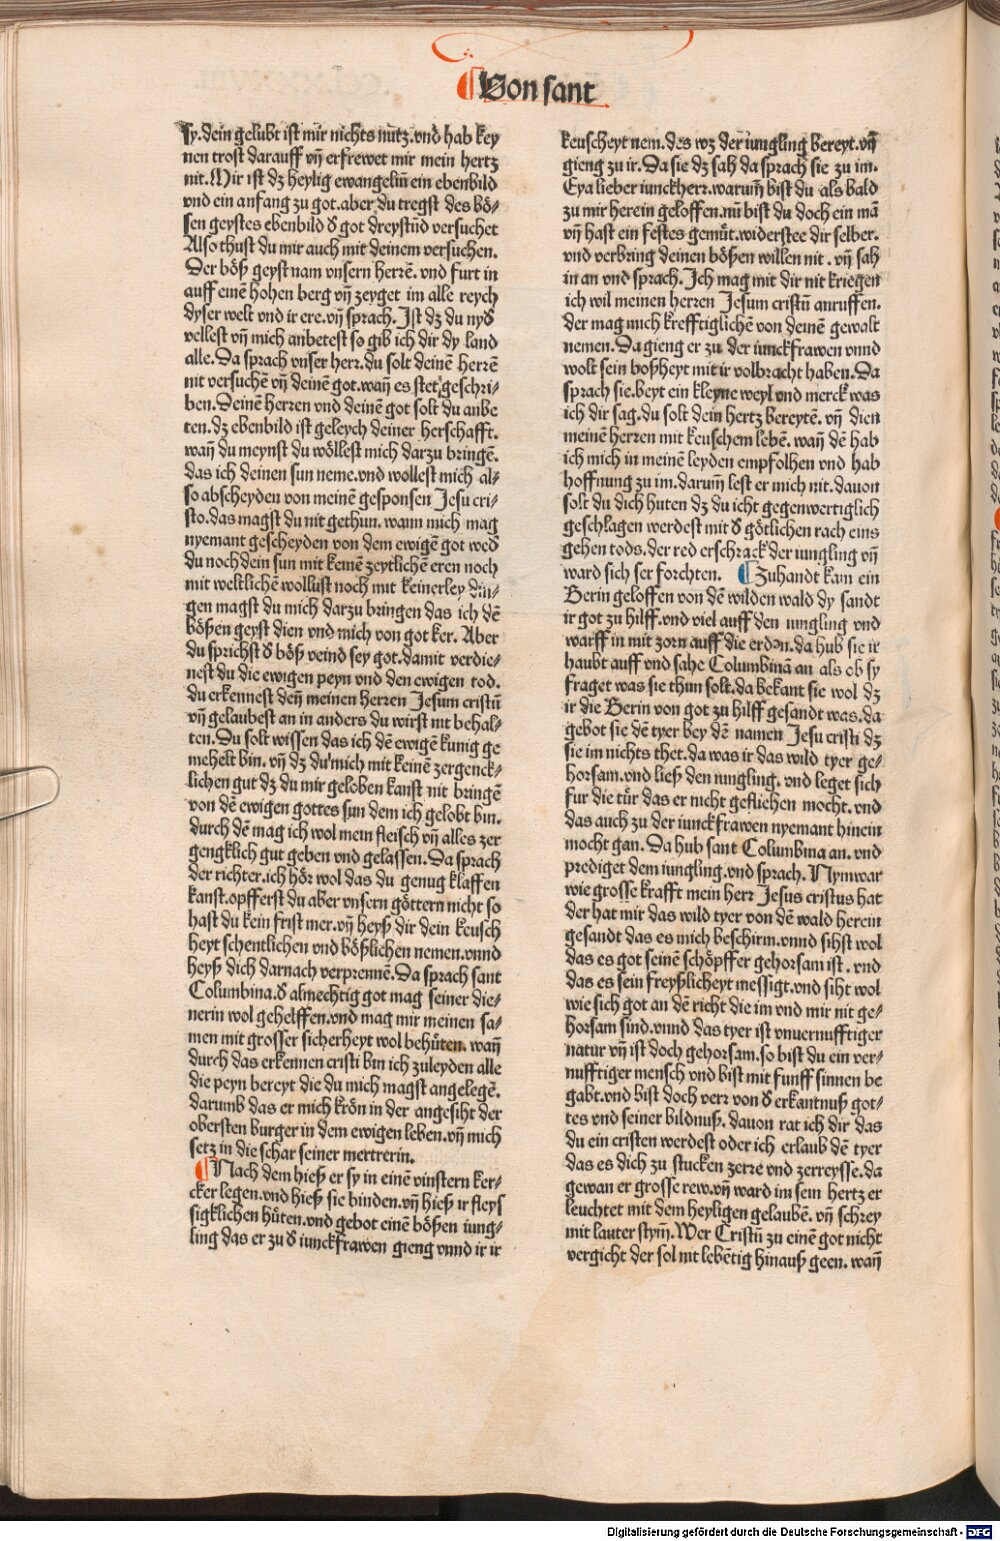 Von sant
sy. dein gelubt ist mir nichts nutz. vnd hab key
nen trost darauff vn̄ erfrewet mir mein hertz
nit. Mir ist dz heylig ewangeliū ein ebenbild
vnd ein anfang zu got. aber du tregst des bö⸗
sen geystes ebenbild ð got dreystūd versuchet
Also thust du mir auch mit deinem versuchen.
Der böß geyst nam vnsern herrē. vnd furt in
auff einē hohen berg vn̄ zeyget im alle reych
dyser welt vnd ir ere. vn̄ sprach. Ist dz du nyð
vellest vn̄ mich anbetest so gib ich dir dy land
alle. Da sprach vnser herr. du solt deinē herrē
nit versuchē vn̄ deinē got. wan̄ es stet geschri⸗
ben. Deinē herren vnd deinē got solt du anbe
ten. dz ebenbild ist geleych deiner herschafft.
wan̄ du meynst du wöllest mich darzu bringē.
das ich deinen sun neme. vnd wollest mich al⸗
so abscheyden von meinē gesponsen Jesu cri⸗
sto. das magst du nit gethun. wann mich mag
nyemant gescheyden von dem ewigē got weð
du noch dein sun mit keinē zeytlichē eren noch
mit weltlichē wollust noch mit keinerley din⸗
gen magst du mich darzu bringen das ich dē
bößen geyst dien vnd mich von got ker. Aber
du sprichst ð böß veind sey got. damit verdie⸗
nest du die ewigen peyn vnd den ewigen tod.
du erkennest den̄ meinen herren Jesum cristū
vn̄ gelaubest an in anders du wirst nit behal⸗
ten. Du solt wissen das ich dē ewigē kunig ge
mehelt bin. vn̄ dz du mich mit keinē zergenck⸗
lichen gut dz du mir geloben kanst nit bringē
von dē ewigen gottes sun dem ich gelobt bin.
durch dē mag ich wol mein fleisch vn̄ alles zer
gengklich gut geben vnd gelassen. Da sprach
der richter. ich hör wol das du genug klaffen
kanst. opfferst du aber vnsern göttern nicht so
hast du kein frist mer. vn̄ heyß dir dein keusch
heyt schentlichen vnd bößlichen nemen. vnnd
heyß dich darnach verprennē. Da sprach sant
Columbina. ð almechtig got mag seiner die⸗
nerin wol gehelffen. vnd mag mir meinen sa⸗
men mit grosser sicherheyt wol behüten. wan̄
durch das erkennen cristi bin ich zuleyden alle
die peyn bereyt die du mich magst angelegē.
darumb das er mich krön in der angesiht der
obersten burger in dem ewigen leben. vn̄ mich
setz in die schar seiner mertrerin.
Nach dem hieß er sy in einē vinstern ker⸗
cker legen. vnd hieß sie binden. vn̄ hieß ir fleys
sigklichen hüten. vnd gebot einē bößen iung⸗
ling das er zu ð iunckfrawen gieng vnnd ir ir
keuscheyt nem. des wz der iungling bereyt. vn̄
gieng zu ir. Da sie dz sah da sprach sie zu im.
Eya lieber iunckherr. warum̄ bist du als bald
zu mir herein geloffen. nū bist du doch ein mā
vn̄ hast ein festes gemüt. widerstee dir selber.
vnd verbring deinen bößen willen nit. vn̄ sah
in an vnd sprach. Ich mag mit dir nit kriegen
ich wil meinen herren Jesum cristū anruffen.
der mag mich krefftiglichē von deinē gewalt
nemen. Da gieng er zu der iunckfrawen vnnd
wolt sein boßheyt mit ir volbracht haben. Da
sprach sie. beyt ein kleyne weyl vnd merck was
ich dir sag. du solt dein hertz bereytē. vn̄ dien
meinē herren mit keuschem lebē. wan̄ dē hab
ich mich in meinē leyden empfolhen vnd hab
hoffnung zu im. darum̄ lest er mich nit. dauon
solt du dich huten dz du icht gegenwertiglich
geschlagen werdest mit ð götlichen rach eins
gehen tods. der red erschrack der iungling vn̄
ward sich ser forchten. Zuhandt kam ein
Berin geloffen von dē wilden wald dy sandt
ir got zu hilff. vnd viel auff den iungling vnd
warff in mit zorn auff die erden. da hub sie ir
haubt auff vnd sahe Columbinā an als ob sy
fraget was sie thun solt. da bekant sie wol dz
ir die Berin von got zu hilff gesandt was. da
gebot sie dē tyer bey dē namen Jesu cristi dz
sie im nichts thet. da was ir das wild tyer ge⸗
horsam. vnd ließ den iungling. vnd leget sich
fur die tür das er nicht gefliehen mocht. vnd
das auch zu der iunckfrawen nyemant hinein
mocht gan. Da hub sant Columbina an. vnd
prediget dem iungling. vnd sprach. Nym war
wie grosse krafft mein herr Jesus cristus hat
der hat mir das wild tyer von dē wald herein
gesandt das es mich beschirm. vnnd sihst wol
das es got seinē schöpffer gehorsam ist. vnd
das es sein freyßlicheyt messigt. vnd siht wol
wie sich got an dē richt die im vnd mir nit ge⸗
horsam sind. vnnd das tyer ist vnuernufftiger
natur vn̄ ist doch gehorsam. so bist du ein ver⸗
nufftiger mensch vnd bist mit funff sinnen be
gabt. vnd bist doch verr von ð erkantnuß got⸗
tes vnd seiner bildnuß. dauon rat ich dir das
du ein cristen werdest oder ich erlaub dē tyer
das es dich zu stucken zerre vnd zerreysse. da
gewan er grosse rew. vn̄ ward im sein hertz er
leuchtet mit dem heyligen gelaubē. vn̄ schrey
mit lauter stym̄. Wer Cristū zu einē got nicht
vergicht der sol nit lebētig hinauß geen. wan̄
Digitalisierung gefördert durch die Deutsche Forschungsgemeinschaft - DFG